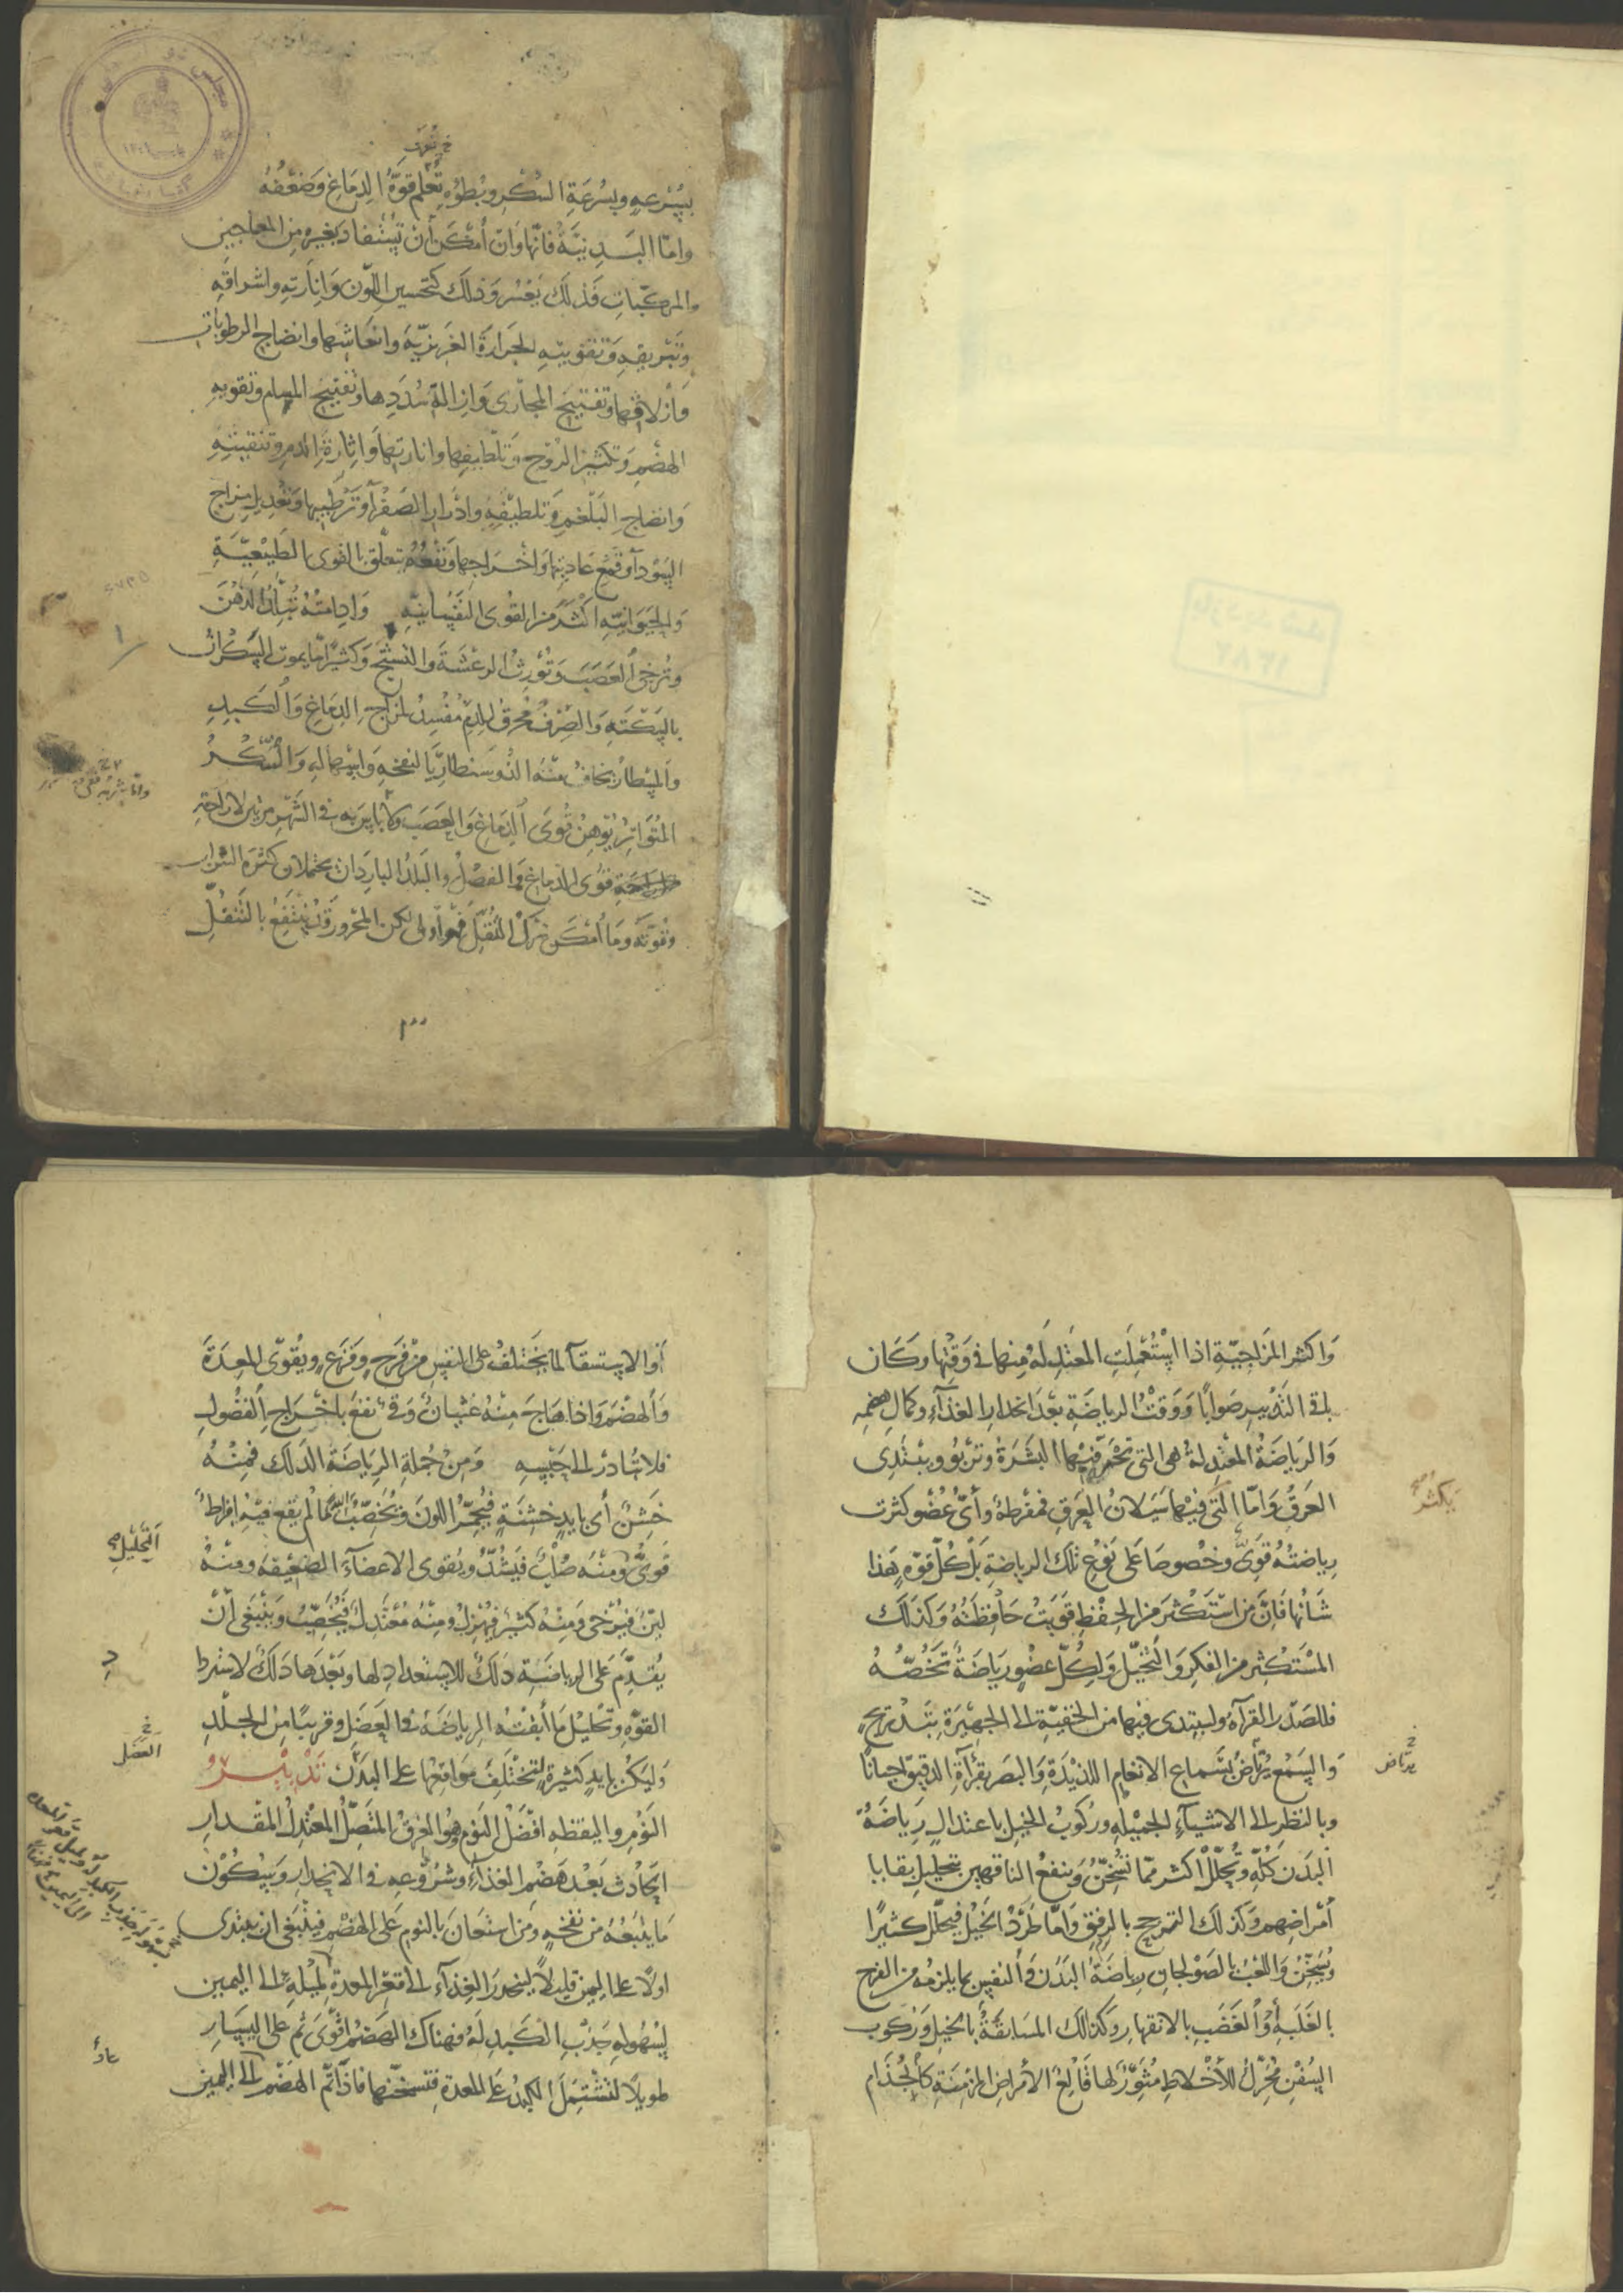 بسرعةٍ وبسُرعَةِ السُكْرِ وبُطؤهِ تُعلم قوّةُ الدِمَاغِ وَضَعْفُهُ
وامّا البَدنِيّةُ فانّها وَانْ أمْكَنَ أنْ تُسْتفاد بغيره من المعاجين
والمركّباتِ فَذلكَ يَعْسُر وَذلك كتحسين اللّون وَانارَتهِ واشراقهِ
وتَبْريقهِ وَتقويتهِ الحَرارَة الغَرِيزيّة وانعَاشهَا وانضاج الرطوبات
وَازْلاقهَا وتَفتيح المَجَارى وَازالة سُدَدِها وتَفتيح المسام وتقويهِ
الهضْمِ وَتكثير الرّوح وَتَلْطيفهَا وانارتها وَاثارةِ الدم وتنقيتهِ
وَانضاج البَلْغمِ وَتلطيفهِ وادْرار الصَفْرآ وَترْطيبها وتعْدِيل مزاج
السَوْدآ وَقمْع عَاديتهَا وَاخْراجها وَنفعُهُ يتعلّق بالقوى الطبيْعيّةِ
وَالحَيَوانيّهِ اكْثَر من القُوى النَفْسانيّهِ وَادامتُهُ تُبلّدُ الذهْنَ
وَتُرخى العَصَبَ وَتُوْرِثُ الرعْشَةَ والتشنّج وَكثيرًا ما يموت السَكْران
بالسكتَهِ وَالصِرْفُ مُحرقٌ للدّم مُفْسِدٌ لمزاجِ الدِماغِ وَالكَبِدِ
وَالمسْطار يخافُ مِنهُ الذُوسَنطاريّا لنفخهِ وَاسهالهِ وَالسُكْرُ
المُتَواتِر يُوهِنُ قُوَى الدِمَاغِ وَالعَصَب ولا باس به فى الشهْرِ مرّتين لاراحتهِ
قُوى الدماغ وَالفصْلُ والبَلدُ البارِدَان يحتملان كثرة الشراب
وقوّته وَما أمْكَن تَرْكُ التنقّل فهو أولى لكن المَحْرور قد يَنتَفعُ بالتنقّلِ
وَاكثر المزاجيّة اذا اسْتُعْمِلَتِ المعتدِلَة منها فى وَقتِها وكَان
باقى التَدْبيرِ صَوابًا وَوَقتُ الرياضَةِ بَعْد انحدار الغذآءِ وكمالِ هضمهِ
وَالرِيَاضَةُ المُعْتدِلةُ هى التى تحْمَرّ فيهَا البَشَرَةُ وتربُو ويبتَدِى
العرَقُ وَامّا التى فيها سَيَلانُ العَرقِ فمفْرطةٌ وأىُّ عُضْوٍ كثرت
يكثر
رياضتُهُ قَوِىَ وخصُوصًا عَلى نوعِ تلك الرياضة بَلْ كلّ قوّهٍ هَذا
شَانُها فَانّ مَن اسْتكْثرَ من الحفْظِ قويَتْ حَافِظتُهُ وَكذلك
المسْتكْثِر من الفكرِ وَالتخيّل وَلكلّ عضْوٍ ريَاضَةٌ تَخُصّهُ
فللصَدْر القرآءةُ وليبتدى فيها من الخفيّة الى الجهيرة بتدْريجٍ
وَالسَمْع يُرْتاضُ بسَماع الانغام اللذيذَةِ وَالبَصَر بقرآءة الدقيق احيانًا
يرتاض
وبالنظر الى الاشيآءِ الجميْلهِ ورُكُوبُ الخيل باعتدالٍ رِيَاضَةٌ
البَدَن كلّهِ وَتُحلّلُ اكْثر ممّا تُسخّنُ وَينفعُ الناقهين بتحليل بقايا
أمْراضِهم وَكذلك الترجّح بالرفق وَامّا طَرْدُ الخيْل فيحلّل كثيرًا
وَيُسَخّنُ وَاللعْبُ بالصَوْلجان رياضة البَدَن وَالنفس بما يلزمُه من الفرح
بالغَلَبهِ أوْ الغَضَبِ بالانقهارِ وَكذلك المسَابقةُ بالخيل وَرُكوب
السُفْن مُحَرّكٌ للأخْلاط مُثوّرٌ لها قَالعُ الأمراض المزمنةِ كالجُذام
أوالاستسقآ لما يَختلفُ على النفس من فَرَحٍ وفَزَعٍ ويُقوّى المعِدَةَ
وَالهضْمَ وَاذا هَاجَ مِنْهُ غثيانٌ وَقىٌ نفعَ باخْراجِ الفُضُولِ
فلا تُبَادر الى حَبْسِهِ وَمِنْ جُملةِ الرياضةِ الدلك فمِنْهُ
خَشِنٌ أى بايدٍ خشِنةٍ فيُحمّرُ اللونَ وَيُخصّبُ ما لم يقع فيهِ افراطٌ
التحليل
قوىٌّ ومنه صُلْبٌ فيَشُدُّ ويُقوى الاعضآءَ الضعيفهَ ومنهُ
ليّنٌ فيُرْخى وَمنهُ كثيرٌ فيُهزِلُ ومنهُ مُعْتَدِلٌ فيُخَصّبُ وينبَغى أنْ
يُقدّمَ على الرياضَةِ دَلكٌ للاستعدادِ لها وبَعْدَها دَلكٌ لاستردادِ
القوّه وتحليل ما أبقتْه الرياضَة فى العَضَلِ وقريبًا من الجِلْدِ
العضل
وَليكن بايدٍ كثيرةٍ لتختَلف مَواقعُها على البَدَن تَدْبيْرُ
النَوْمِ واليقظهِ افْضَلُ النَوْم هُو الغرقُ المُتّصلُ المعْتدِلُ المقْدارِ
الحَادث بَعْد هَضْمِ الغذآءِ وشُرُوْعِهِ فى الانحِدارِ وَسكُوْن
ما يتبعُهُ من نفخهٍ وَمن استَعانَ بالنوم عَلى الهضْم فينبَغى ان يبتدى
اولًا على اليمين قليلًا لينحدرَ الغذآء الى قعْر المعدةِ لميْلهِ الى اليمين
لسُهولهِ جَذْبِ الكَبدِ لهُ فهناك الهضْمُ اقوَى ثم على اليسَار
طويلًا لتشْتَمِلَ الكبد عَلى المعدة فتسخّنها فاذا تمّ الهضْم الى اليمين